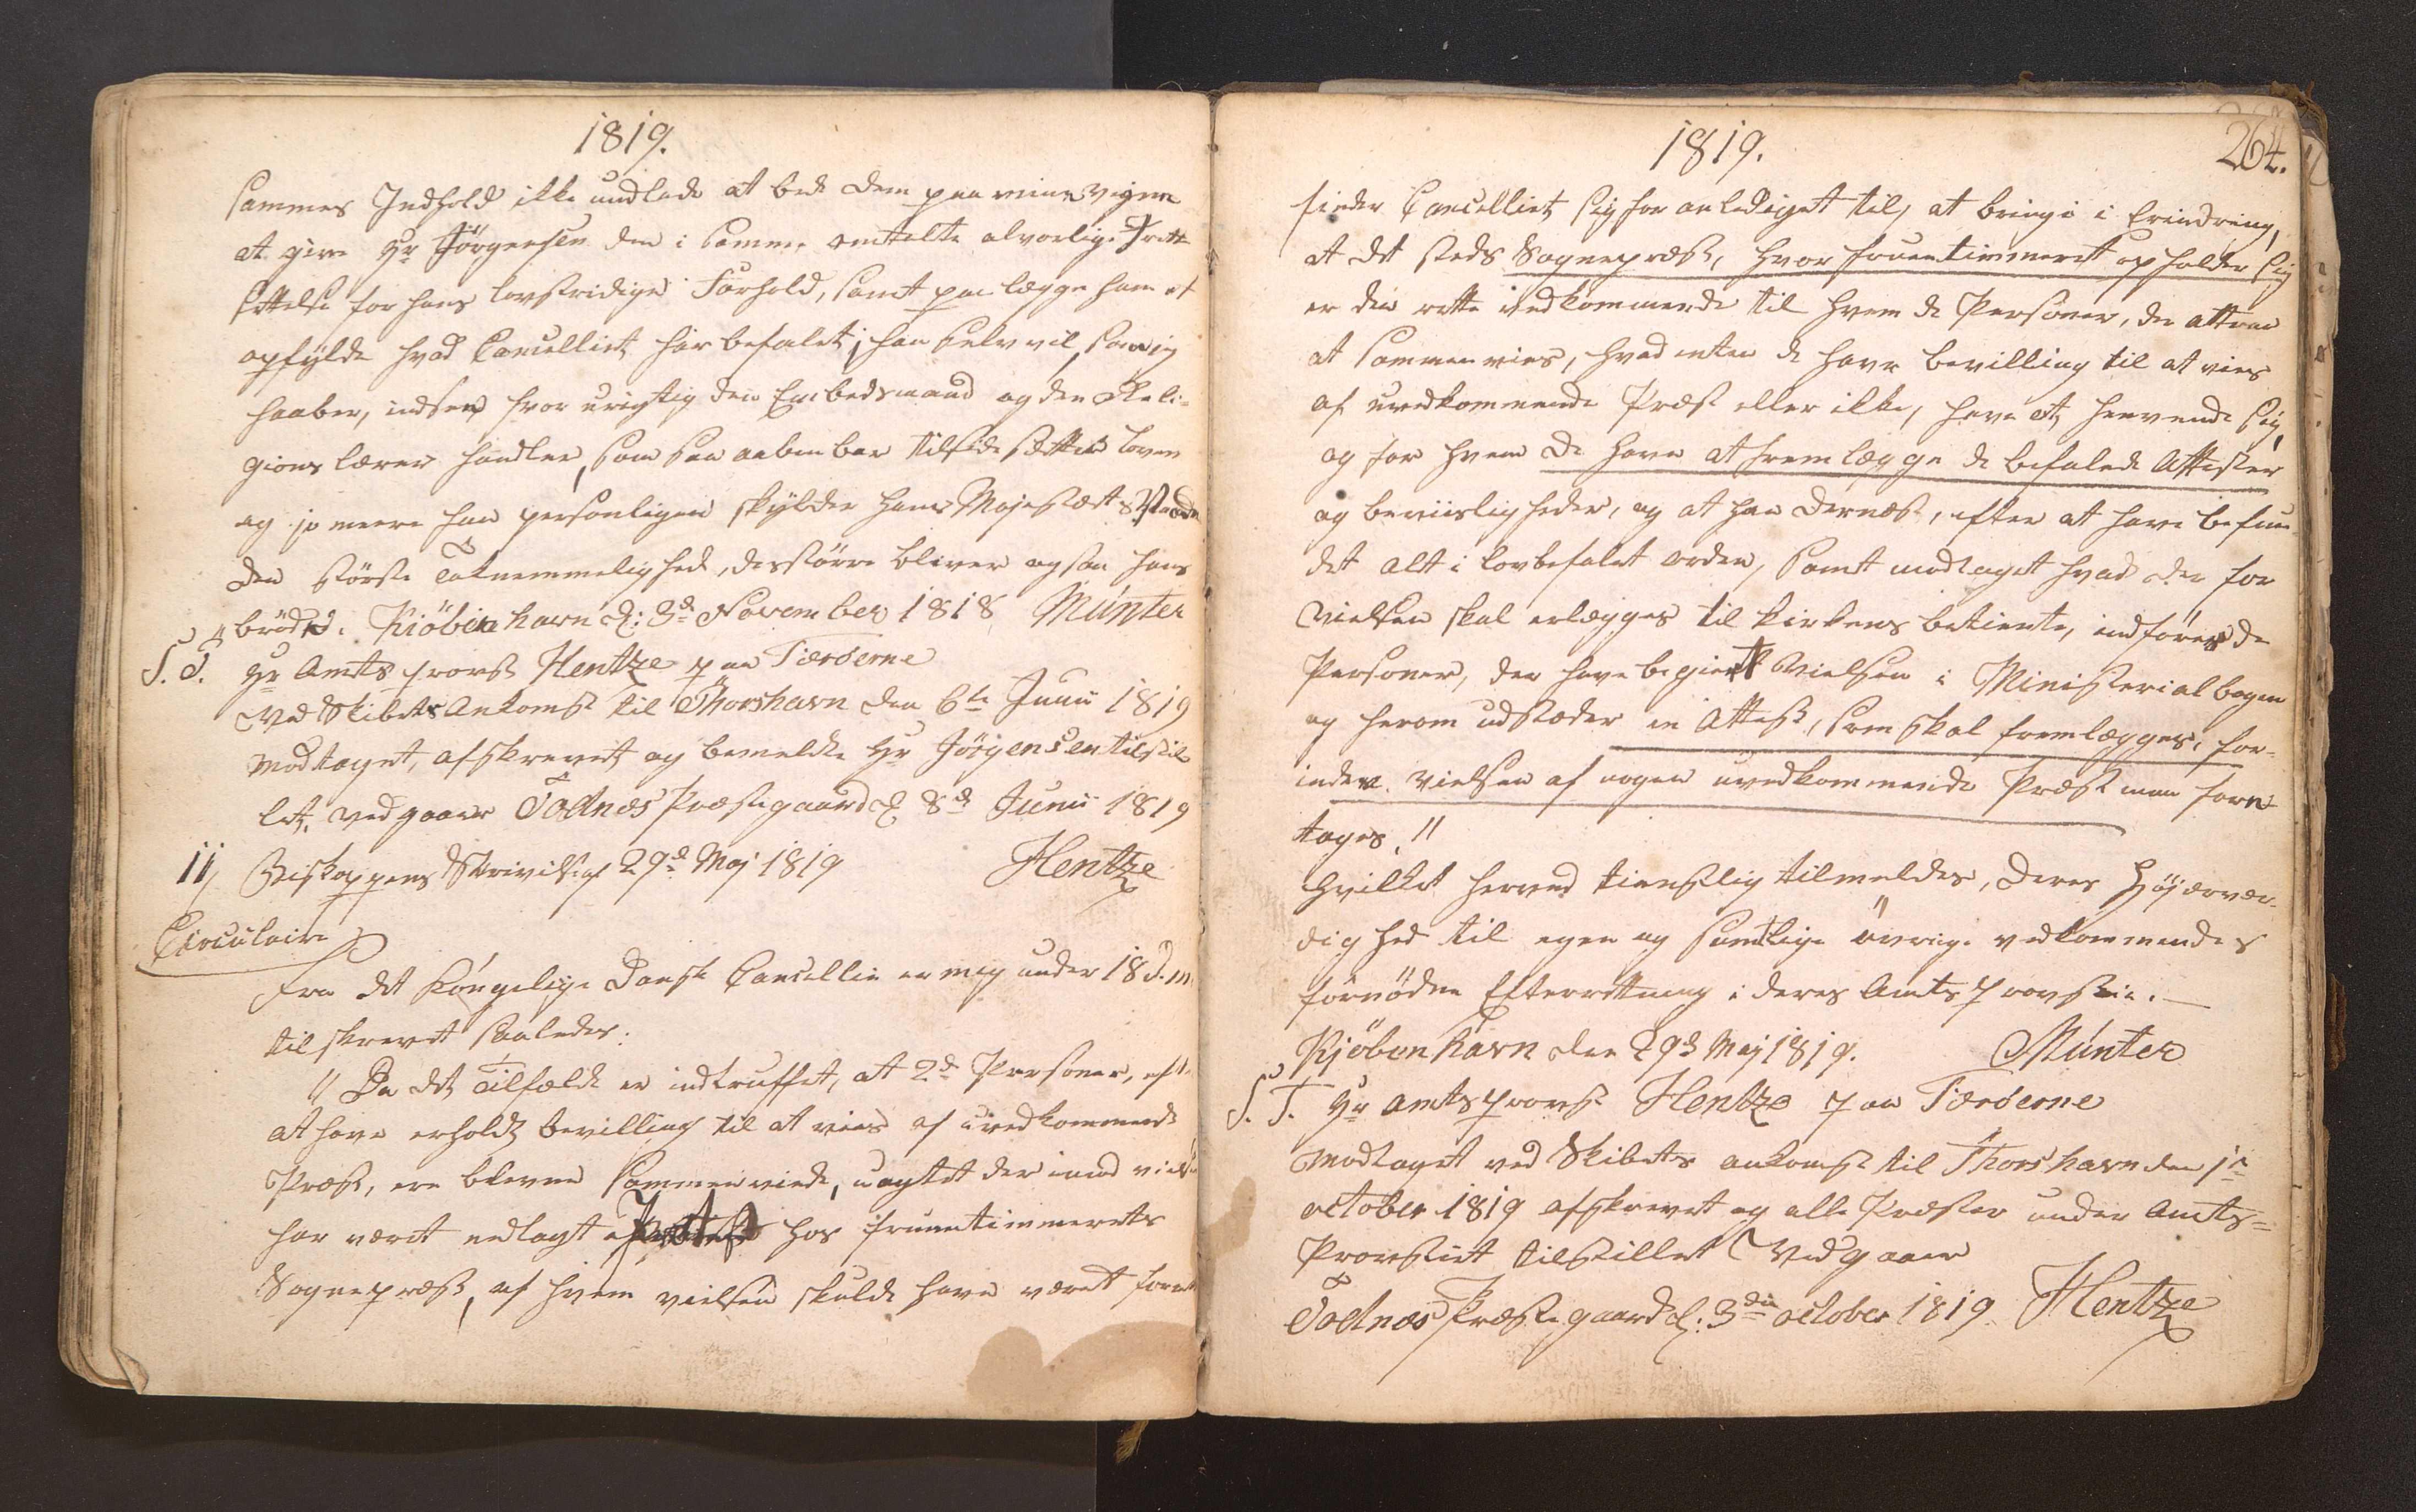 1819.
sammes Indhold ikke undlade at bede Dem paa mine Vegne
at give Hr Jörgensen den i samme omtalte alvorlige Irette
settelse for hans lovstridige Forhold, samt paalægge ham at
opfylde hvad Cancelliet har befalet; han selv vil, som jeg
haaber, indsee hvor urigtig den Embedsmand og den Reli-
gions lærer handler, som saa aabenbar tilsidesætter loven
og jo meere han personligen skylder Hans Majestæt
den störste Taknemmelighed, desstörre bliver ogsaa hans
bröde. Kiöbenhavn d: 3d November 1818 Münter
S. T. Hr Amtsprovst Hentze paa Færöerne
Ved Skibets Ankomst til Thorshavn den 6te Junii 1819
modtaget, afskrevet og bemeldte Hr Jörgensen tilstil
let. Vedgaaer Todnæs Præstegaard d. 8d Junii 1819
11, Biskoppens Skrivelse af 29d Maj 1819 Hentze
Circulaire
Fra det Kongelige Danske Cancellie er mig under 18 d. m.
tilskrevet saaledes:
"Da det Tilfælde er indtruffet, at 2de Personer, eft
at have erholdt bevilling til at vies af uvedkommende
Præst, ere blevne sammenviede, uagtet der imod viels
har været nedlagt Protest hos fruentimmerets
Sognepræst, af hvem vielsen skulde have været forret
1819.
264.
finder Cancelliet sig foranlediget til, at bringe i Erindring,
at det steds Sognepræst, hvor fruentimmeret opholder sig
er den rette vedkommende til hvem de Personer, der attraae
at sammenvies, hvad enten de have bevilling til at vies
af uvedkommende Præst eller ikke, have at henvende sig,
og for hvem de have at fremlægge de befalede Attester
og beviisligheder, og at han dernæst, efter at have befun
det alt i lovbefalet orden, samt modtaget hvad der for
Vielsen skal erlægges til kirkens betiente, indförer de
Personer, der have begiert Vielsen i Ministerialbogen
og herom udstæder en Attest, som skal fremlægges, for-
inden vielsen af nogen uvedkommende Præst maa fore-
tages."
Hvilket herved tienstlig tilmeldes, Deres Höjærvær-
dighed til egen og samtlige övrige vedkommendes
fornödne Efterretning i deres Amts Provstie.
Kjöbenhavn den 29d Maj 1819. Münter
S. T. Hr Amtsprovst Hentze paa Færöerne
Modtaget ved Skibets ankomst til Thorshavn den 1e
october 1819 afskrevet og alle Præster under Amts-
Provstiet tilstillet Vedgaaer
Todnæs Præstegaard d: 3die october 1819 Hentze